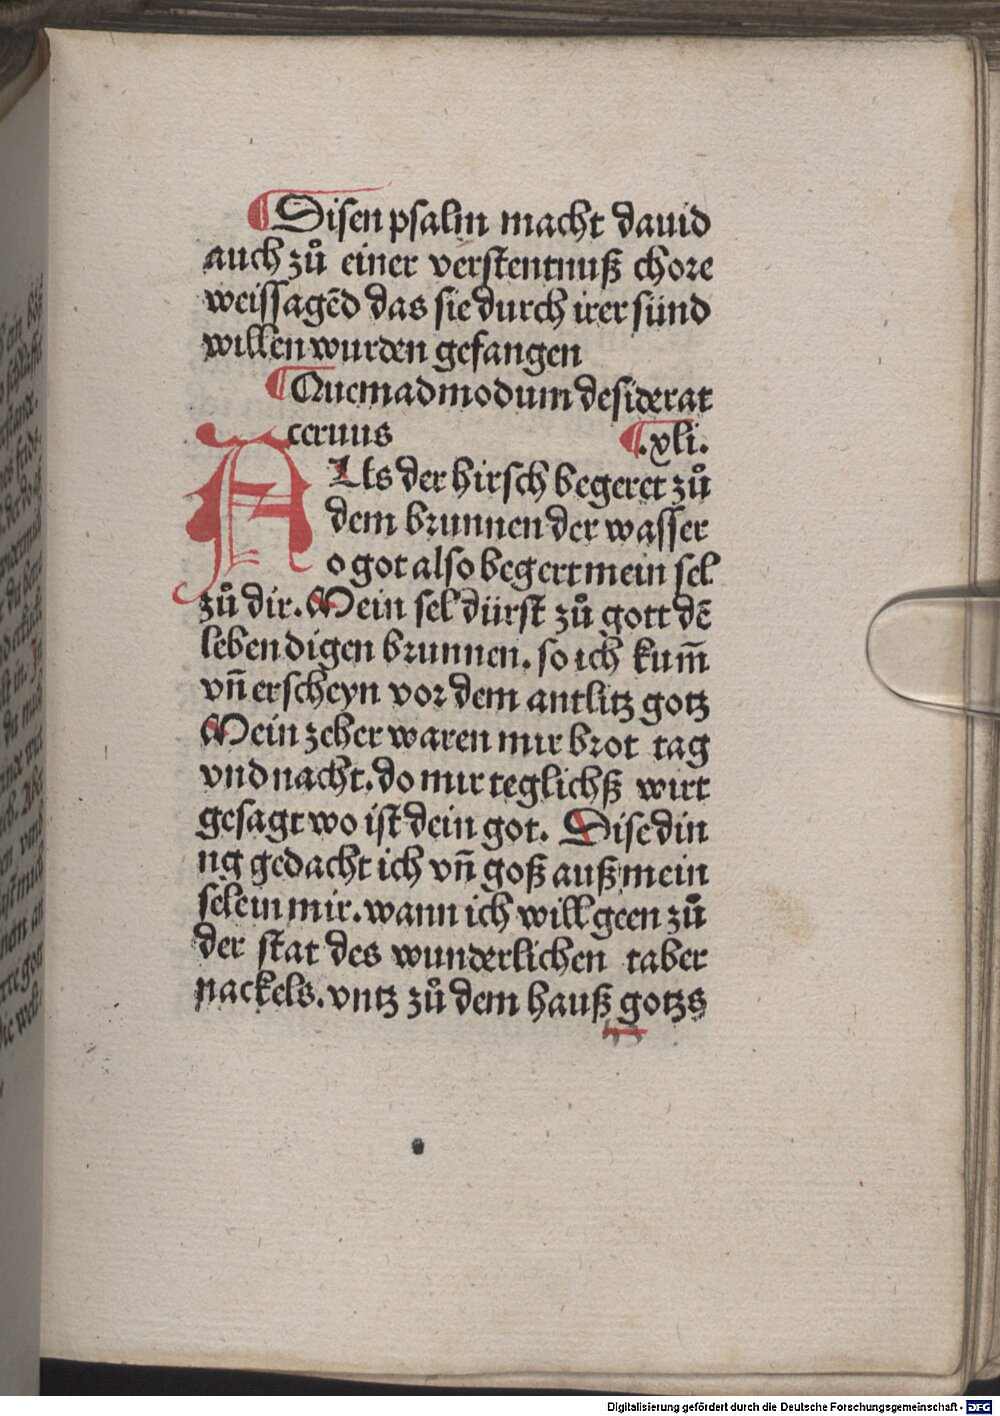 Disen psalm macht dauid
auch zů einer verstentnuß chore
weissagēd das sie durch irer sünd
willen wurden gefangen
Quemadmodum desiderat
ceruus .xli.
ALls der hirsch begeret zů
dem brunnen der wasser
o got also begert mein sel
zů dir. Mein sel dürst zů gott dē
lebendigen brunnen. so ich kum̄
vn̄ erscheyn vor dem antlitz gotz
Mein zeher waren mir brot tag
vnd nacht. do mir teglichß wirt
gesagt wo ist dein got. Dise din
ng gedacht ich vn̄ goß auß mein
sele in mir. wann ich will geen zů
der stat des wunderlichen taber
nackels. vntz zů dem hauß gotzs
Digitalisierung gefördert durch die Deutsche Forschungsgemeinschaft - DFG